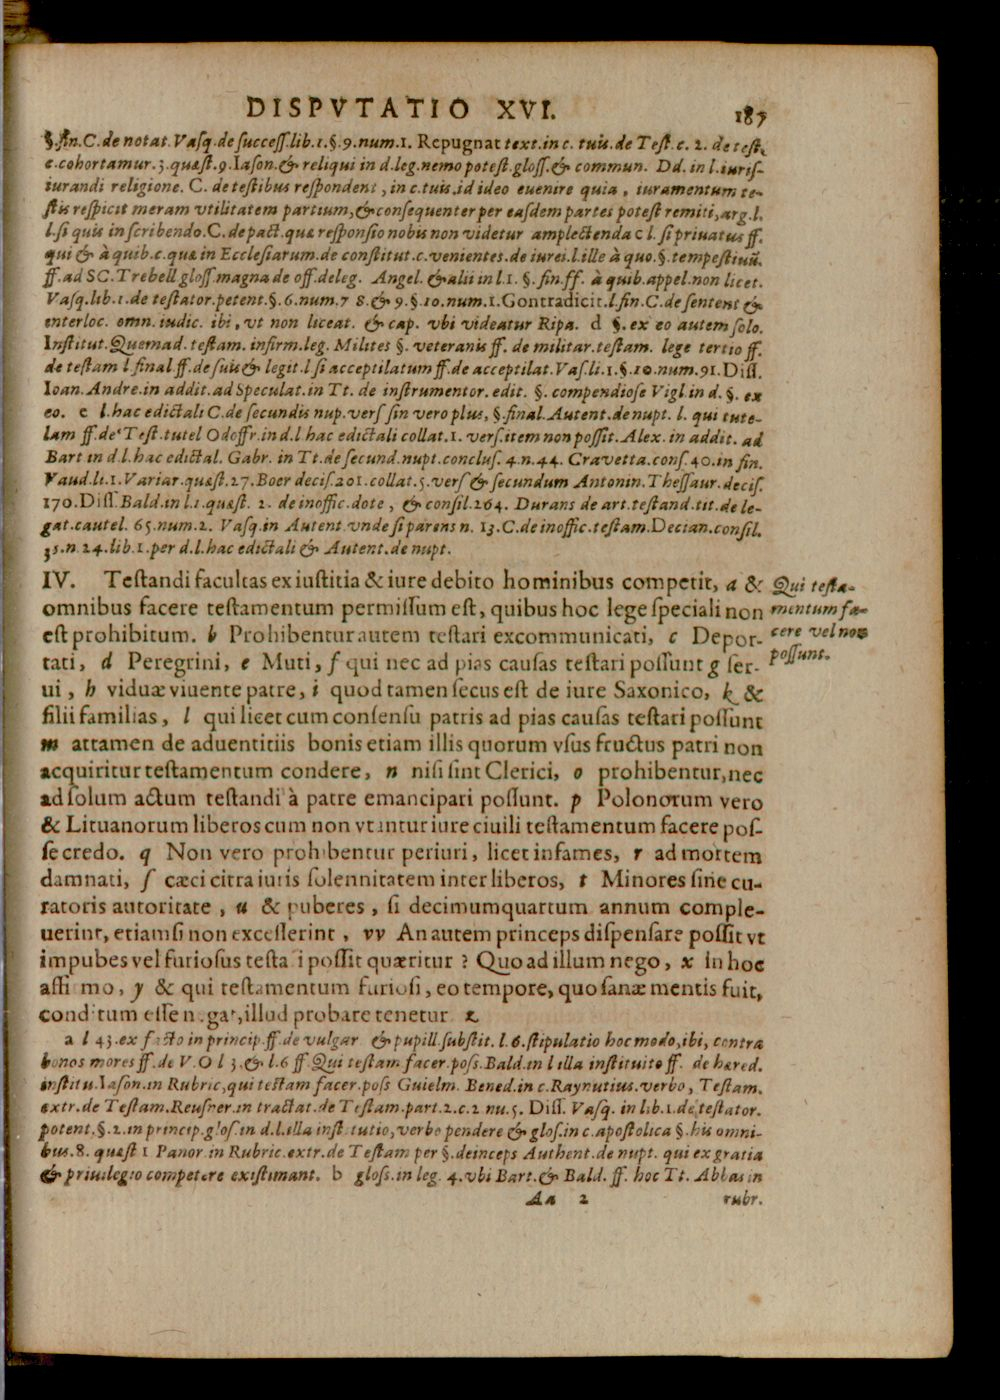 DISPVTATIO XVI. 187
§. fin. C. de notat. Vasq. de success. lib. 1. §. 9. num. 1. Repugnat text. in c. tuis. de Test. c. 2. de test.
c. cohortamur. 3. quæst. 9. Iason. & reliqui in d. leg. nemo potest. gloss. & commun. Dd. in l. iuris-
iurandi religione. C. de testibus respondent, in c. tuis. id ideo euenire quia, iuramentum te-
stis respicit meram vtilitatem partium, & consequenter per easdem partes potest remiti, arg. l.
l. si quis in scribendo. C. de pact. quæ responsio nobis non videtur amplectenda c l. si priuatus ff.
qui & à quib. c. quæ in Ecclesiarum. de constitut. c. venientes. de iurei. l. ille à quo. §. tempestiuũ.
ff. ad SC. Trebell. gloss. magna de off. deleg. Angel. & alii in l. 1 §. fin. ff. à quib. appel. non licet.
Vasq. lib. 1. de testator. petent. §. 6. num. 7 8. & 9. §. 10. num. 1. Gontradicit. l. fin. C. de sentent &
enterloc. omn. iudic. ibi, vt non liceat. & cap. vbi videatur Ripa. d §. ex eo autem solo.
Institut. Quemad. testam. infirm. leg. Milites §. veteranis ff. de militar. testam. lege tertio ff.
de testam l. final. ff. de suis & legit. l. si acceptilatum ff. de acceptilat. Vas. li. 1. §. 10. num. 91. Diss.
Ioan. Andre. in addit. ad Speculat. in Tt. de instrumentor. edit. §. compendiose Vigl in d. §. ex
eo. e l. hac edictali C. de secundis nup. vers sin vero plus, §. final. Autent. de nupt. l. qui tute-
lam ff. de Test. tutel Odoffr. in d. l hac edictali collat. 1. vers. item non possit. Alex. in addit. ad
Bart in d. l. hac edictal. Gabr. in Tt. de secund. nupt. conclus. 4. n. 44. Cravetta. cons. 40. in fin.
Vaud. li. 1. Variar. quæst. 27. Boer decis. 201. collat. 5. vers & secundum Antonin. Thessaur. decis.
170. Diss. Bald. in l. 1 quæst. 2. de inoffic. dote, & consil. 264. Durans de art. testand. tit. de le-
gat. cautel. 65. num. 2. Vasq. in Autent. vnde si parens n. 13. C. de inoffic. testam. Decian. consil.
35. n. 24. lib. 1. per d. l. hac edictali & Autent. de nupt.
IV. Testandi facultas ex iustitia & iure debito hominibus competit, a &
omnibus facere testamentum permissum est, quibus hoc lege speciali non
est prohibitum. b Prohibentur autem testari excommunicati, c Depor-
tati, d Peregrini, e Muti, f qui nec ad pias causas testari possunt g ser-
ui, h viduæ viuente patre, i quod tamen secus est de iure Saxonico, k &
filii familias, l qui licet cum consensu patris ad pias causas testari possunt
m attamen de aduentitiis bonis etiam illis quorum vsus fructus patri non
acquiritur testamentum condere, n nisi sint Clerici, o prohibentur, nec
ad solum actum testandi à patre emancipari possunt. p Polonorum vero
& Lituanorum liberos cum non vtantur iure ciuili testamentum facere pos-
se credo. q Non vero prohibentur periuri, licet infames, r ad mortem
damnati, s cæci citra iuris solennitatem inter liberos, t Minores sine cu-
ratoris autoritate, u & puberes, si decimumquartum annum comple-
uerint, etiamsi non excesserint, vv An autem princeps dispensare possit vt
impubes vel furiosus testa i possit quæritur? Quo ad illum nego, x in hoc
affi mo, y & qui testamentum furiosi, eo tempore, quo sanæ mentis fuit,
conditum esse n gat, illud probare tenetur z
Qui testa-
mentum fa-
cere vel non
possunt.
a l 43. ex facto in princip. ff. de vulgar & pupill. substit. l. 6. stipulatio hoc modo, ibi, contra
bonos mores ff. de V. O l 3. & l. 6 ff. Qui testam facer. poss. Bald. in l illa instituito ff. de hæred.
institu. Iason. in Rubric, qui testam facer. poss Guielm. Bened. in c. Raynutius. verbo, Testam.
extr. de Testam. Reusner. in tractat. de Testam. part. 2. c. 2 nu. 5. Diss. Vasq. in lib. 1. de testator.
potent. §. 2. in princip. glos. in d. l. illa institutio, verbo pendere & glos. in c. apostolica §. his omni-
bus. 8. quæst 1 Panor. in Rubric. extr. de Testam per §. deinceps Authent. de nupt. qui ex gratia
& priuilegio competere existimant. b glos. in leg. 4. vbi Bart. & Bald. ff. hoc Tt. Abbas in
Aa 2 rubr.